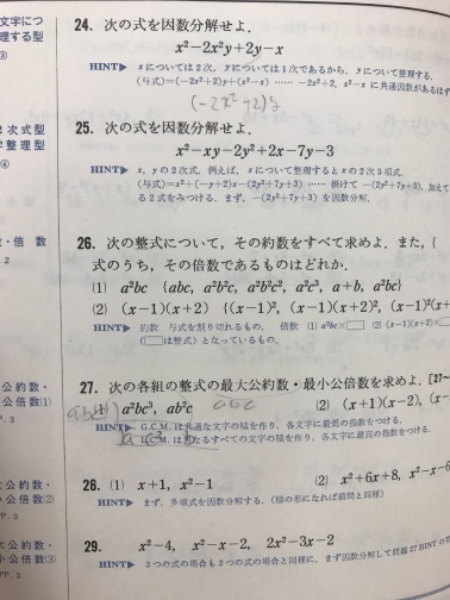 文字につ
理する型
③
24. 次の式を因数分解せよ．
x²−2x²y+2y−x
HINT▶ xについては2次，yについては1次であるから，yについて整理する．
(与式)=(−2x²+2)y+(x²−x) …… −2x²+2, x²−x に共通因数があるはず
(−2x²+2)y
2次式型
整理型
④
25. 次の式を因数分解せよ．
x²−xy−2y²+2x−7y−3
HINT▶ x，yの2次式．例えば，xについて整理するとxの2次3項式．
(与式)=x²+(−y+2)x−(2y²+7y+3) …… 掛けて −(2y²+7y+3)，加えて
る2式をみつける．まず，−(2y²+7y+3) を因数分解．
・倍 数
.2
26. 次の整式について，その約数をすべて求めよ．また，{
式のうち，その倍数であるものはどれか．
(1) a²bc {abc, a²b²c, a²b²c², a²c³, a+b, a²bc}
(2) (x−1)(x+2) {(x−1)², (x−1)(x+2)², (x−1)²(x+
HINT▶ 約数 与式を割り切れるもの． 倍数 (1) a²bc×□ (2) (x−1)(x+2)×□
(□は整式) となっているもの．
公約数・
公倍数(1)
P.3
27. 次の各組の整式の最大公約数・最小公倍数を求めよ．[27〜
(1) a²bc³, ab²c abc
(2) (x+1)(x−2), (x−
HINT▶ G.C.M. は共通な文字の積を作り，各文字に最低の指数をつける．
L.C.M. は異なるすべての文字の積を作り，各文字に最高の指数をつける．
大公約数・
小公倍数(2)
P.3
28. (1) x+1, x²−1
(2) x²+6x+8, x²−x−6
HINT▶ まず，多項式を因数分解する．(積の形になれば前問と同様)
大公約数・
小公倍数(3)
PP.3
29. x²−4, x²−x−2, 2x²−3x−2
HINT▶ 3つの式の場合も2つの式の場合と同様に，まず因数分解して問題27 HINT の